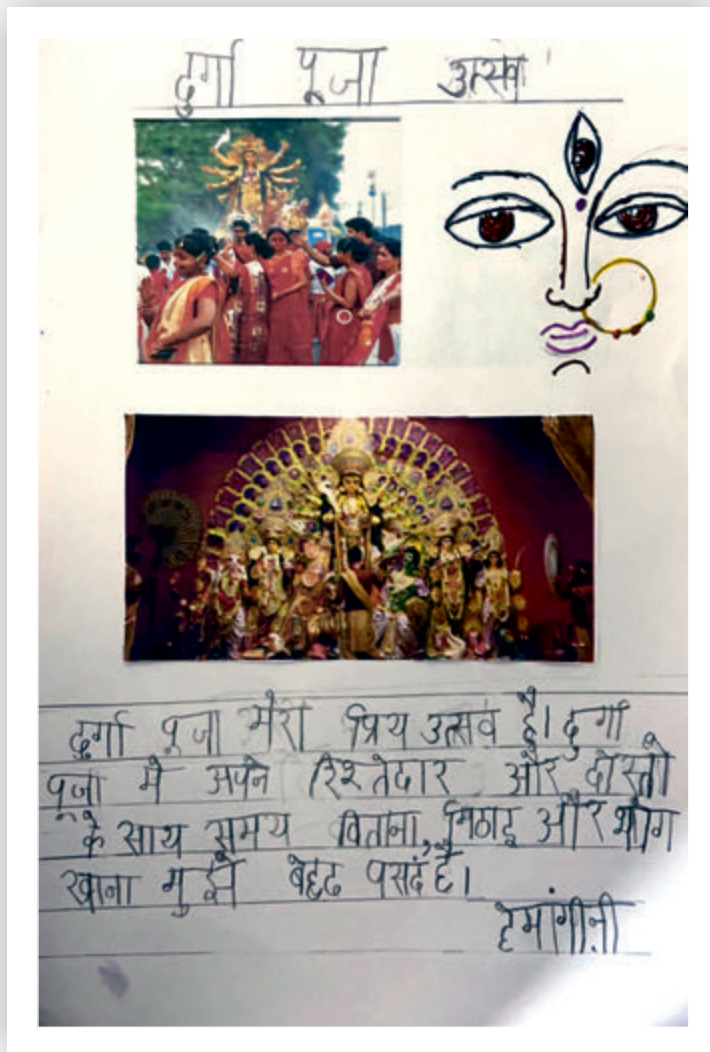 दुर्गा पूजा उत्सव
दुर्गा पूजा मेरा प्रिय उत्सव है। दुर्गा
पूजा मे अपने रिश्तेदार और दोस्तो
के साथ समय बिताना, मिठाइ और भोग
खाना मुझे बेहद पसदं है।
हेमांगीनी